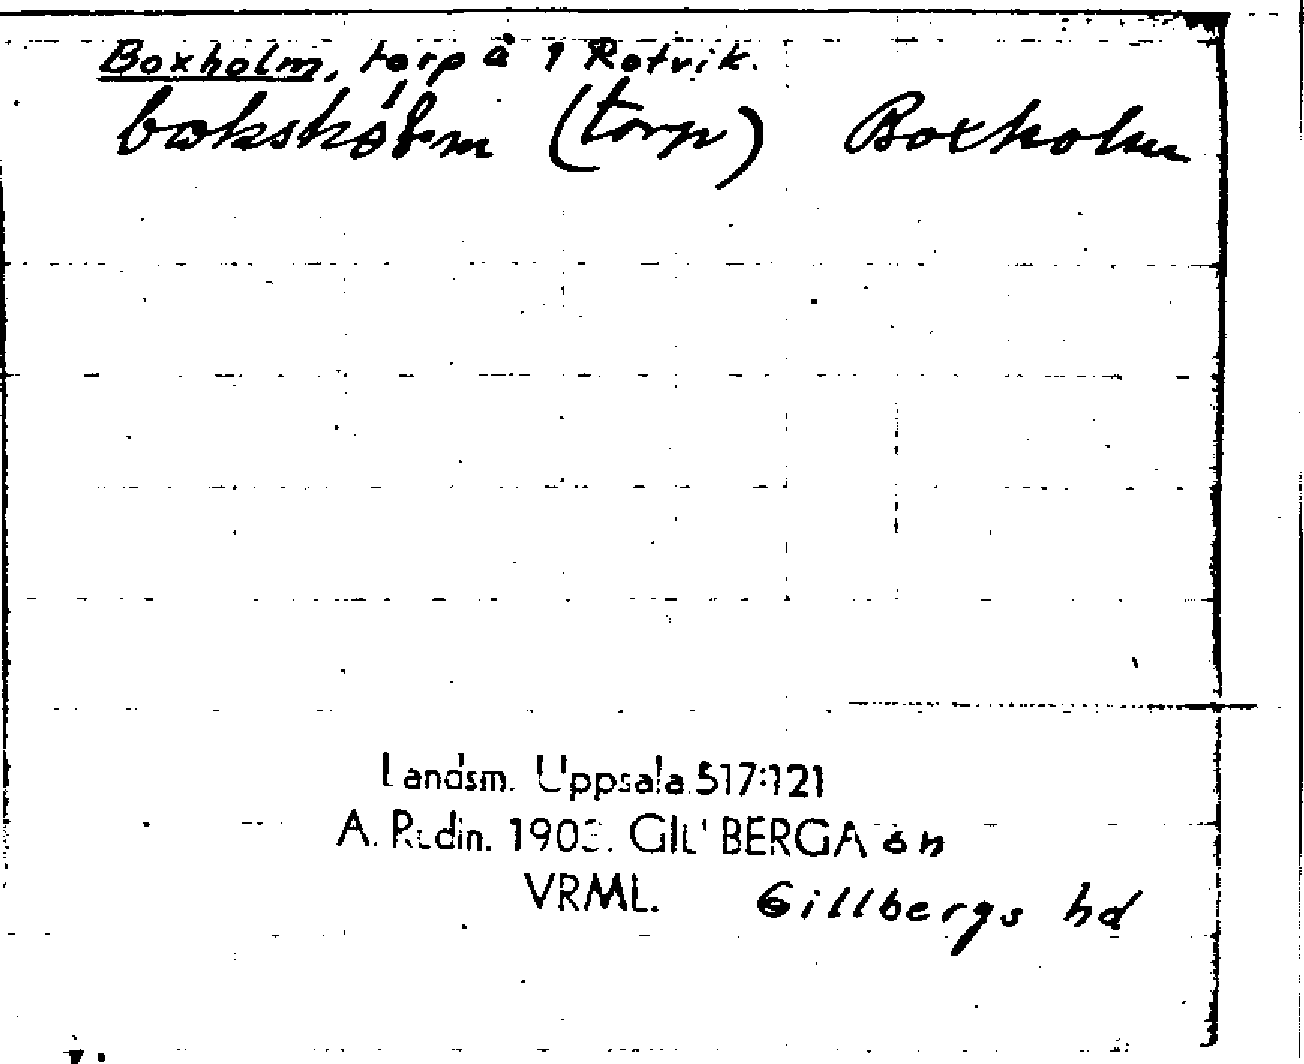 Boxholm, torp å 1 Rotvik.
bokshólm (torp) Boxholm
Landsm. Uppsala 517:121
A. 190 GILLBERGA sn
VRML. Gillbergs hd